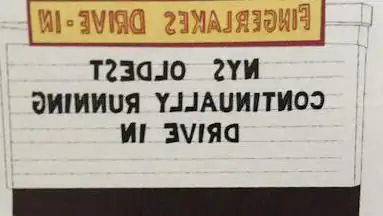 FINGERLAKES DRIVE-IN
NYS OLDEST
CONTINUALLY RUNNING
DRIVE IN